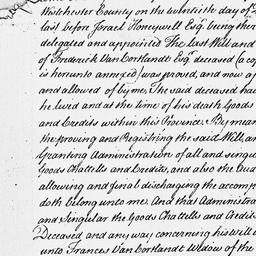 Westchester County on the twentieth day of
last before Israel Honeywell Esqr. being ther
delegated and appointed The last Will and
of Frederick Van Cortlandt Esqr. deceased (a cop
is hereunto annexed) was proved, and now a
and allowed of by me, The said deceased hav
he lived and at the time of his death Goods
and Credits within this Province, By mean
the proving and Registring the said Will, an
Granting Administration of all and singu
Goods Chattells and Credits, and also the Aud
allowing and final discharging the accomp
doth belong unto me. And that Administra
and Singular the Goods Chattells and Credits
Deceased and any way concerning his Will i
unto Frances Van Cortlandt Widow of the